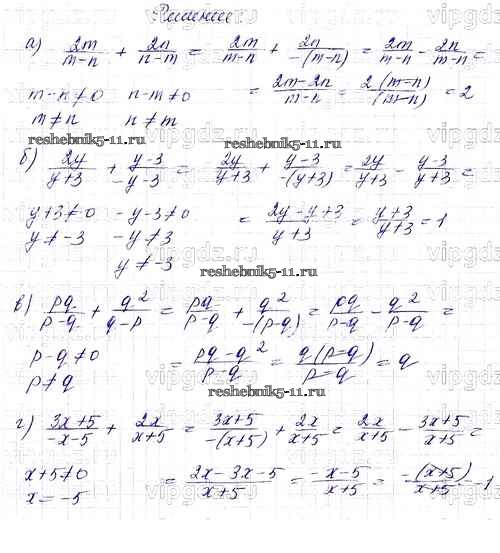 Решение.
а) 2m/(m-n) + 2n/(n-m) = 2m/(m-n) + 2n/(-(m-n)) = 2m/(m-n) - 2n/(m-n) =
m-n≠0 n-m≠0 = (2m-2n)/(m-n) = 2(m-n)/(m-n) = 2
m≠n n≠m
reshebnik5-11.ru reshebnik5-11.ru
б) 2y/(y+3) + (y-3)/(-y-3) = 2y/(y+3) + (y-3)/(-(y+3)) = 2y/(y+3) - (y-3)/(y+3) =
y+3≠0 -y-3≠0 = (2y-y+3)/(y+3) = (y+3)/(y+3) = 1
y≠-3 -y≠3
y≠-3
reshebnik5-11.ru
в) pq/(p-q) + q²/(q-p) = pq/(p-q) + q²/(-(p-q)) = pq/(p-q) - q²/(p-q) =
p-q≠0 = (pq-q²)/(p-q) = q(p-q)/(p-q) = q
p≠q
reshebnik5-11.ru
г) (3x+5)/(-x-5) + 2x/(x+5) = (3x+5)/(-(x+5)) + 2x/(x+5) = 2x/(x+5) - (3x+5)/(x+5) =
x+5≠0 = (2x-3x-5)/(x+5) = (-x-5)/(x+5) = -(x+5)/(x+5) = -1
x=-5
reshebnik5-11.ru
vipgdz.ru